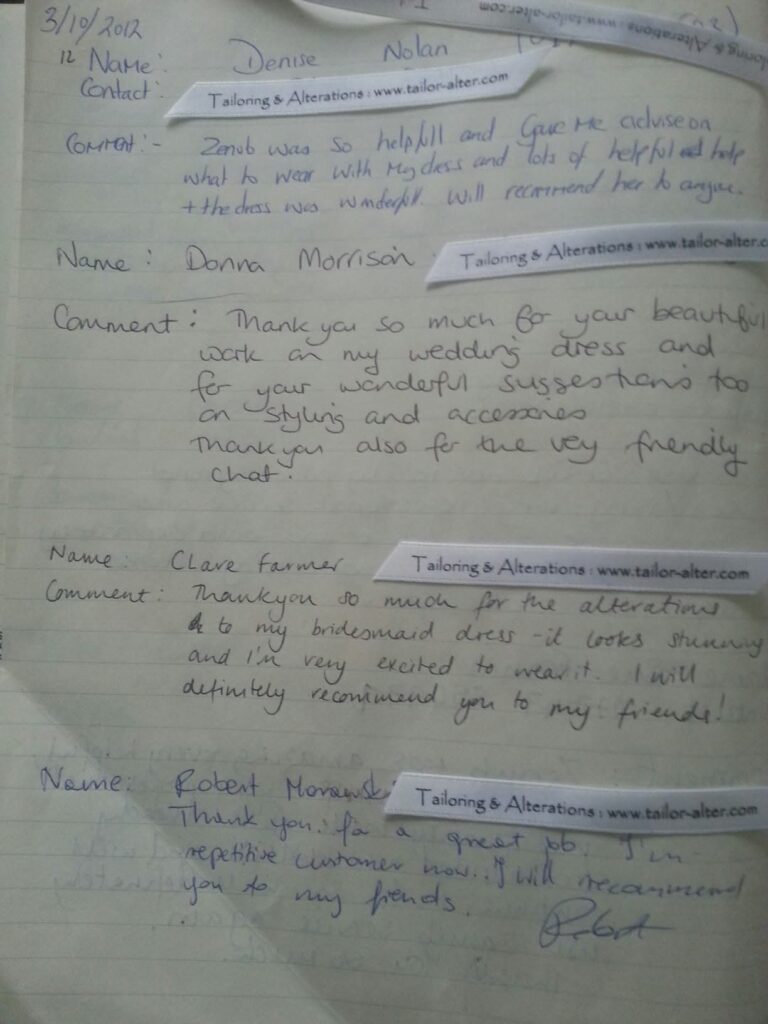 3/10/2012
Tailoring & Alterations : www.tailor-alter.com
12 Name: Denise Nolan
Contact: Tailoring & Alterations : www.tailor-alter.com
Comment:- Zenob was so helpfull and Gave Me advise on
what to wear with My dress and lots of helpful help
+ the dress was wonderfull. Will recommend her to anyone.
Name: Donna Morrison Tailoring & Alterations : www.tailor-alter.c
Comment: Thank you so much for your beautiful
work on my wedding dress and
for your wonderful suggestions too
on styling and accessories
Thank you also for the very friendly
chat.
Name: Clare Farmer Tailoring & Alterations : www.tailor-alter.com
Comment: Thankyou so much for the alterations
to my bridesmaid dress - it looks stunning
and I'm very excited to wear it. I will
definitely recommend you to my friends!
Name: Robert Morawski Tailoring & Alterations : www.tailor-alter.com
Thank you for a great job. I'm
repetitive customer now.. I will recommend
you to my fiends.
Robert